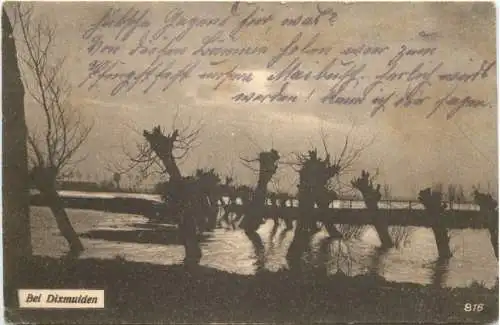 hübsche Gegend hier, was?
Von diesen Bäumen holen wir zum
Pfingstfest unsern Maibusch,
werden! Kann ich Dir sagen.
Bei Dixmuiden
816